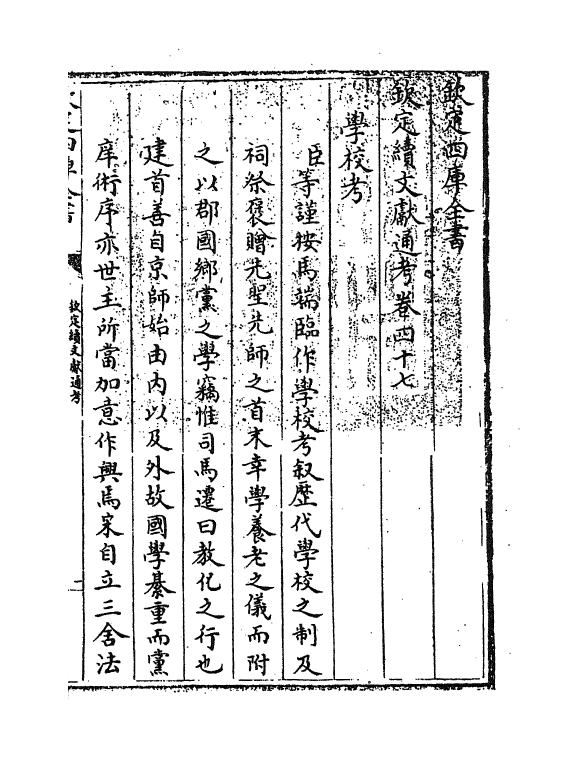 欽定四庫全書
欽定續文獻通考卷四十七
學校考
臣等謹按馬端臨作學校考叙歴代學校之制及
祠祭褒贈先聖先師之首末幸學養老之儀而附
之以郡國鄉黨之學竊惟司馬遷曰教化之行也
建首善自京師始由内以及外故國學綦重而黨
庠術序亦世主所當加意作興焉宋自立三舍法
欽定續文獻通考